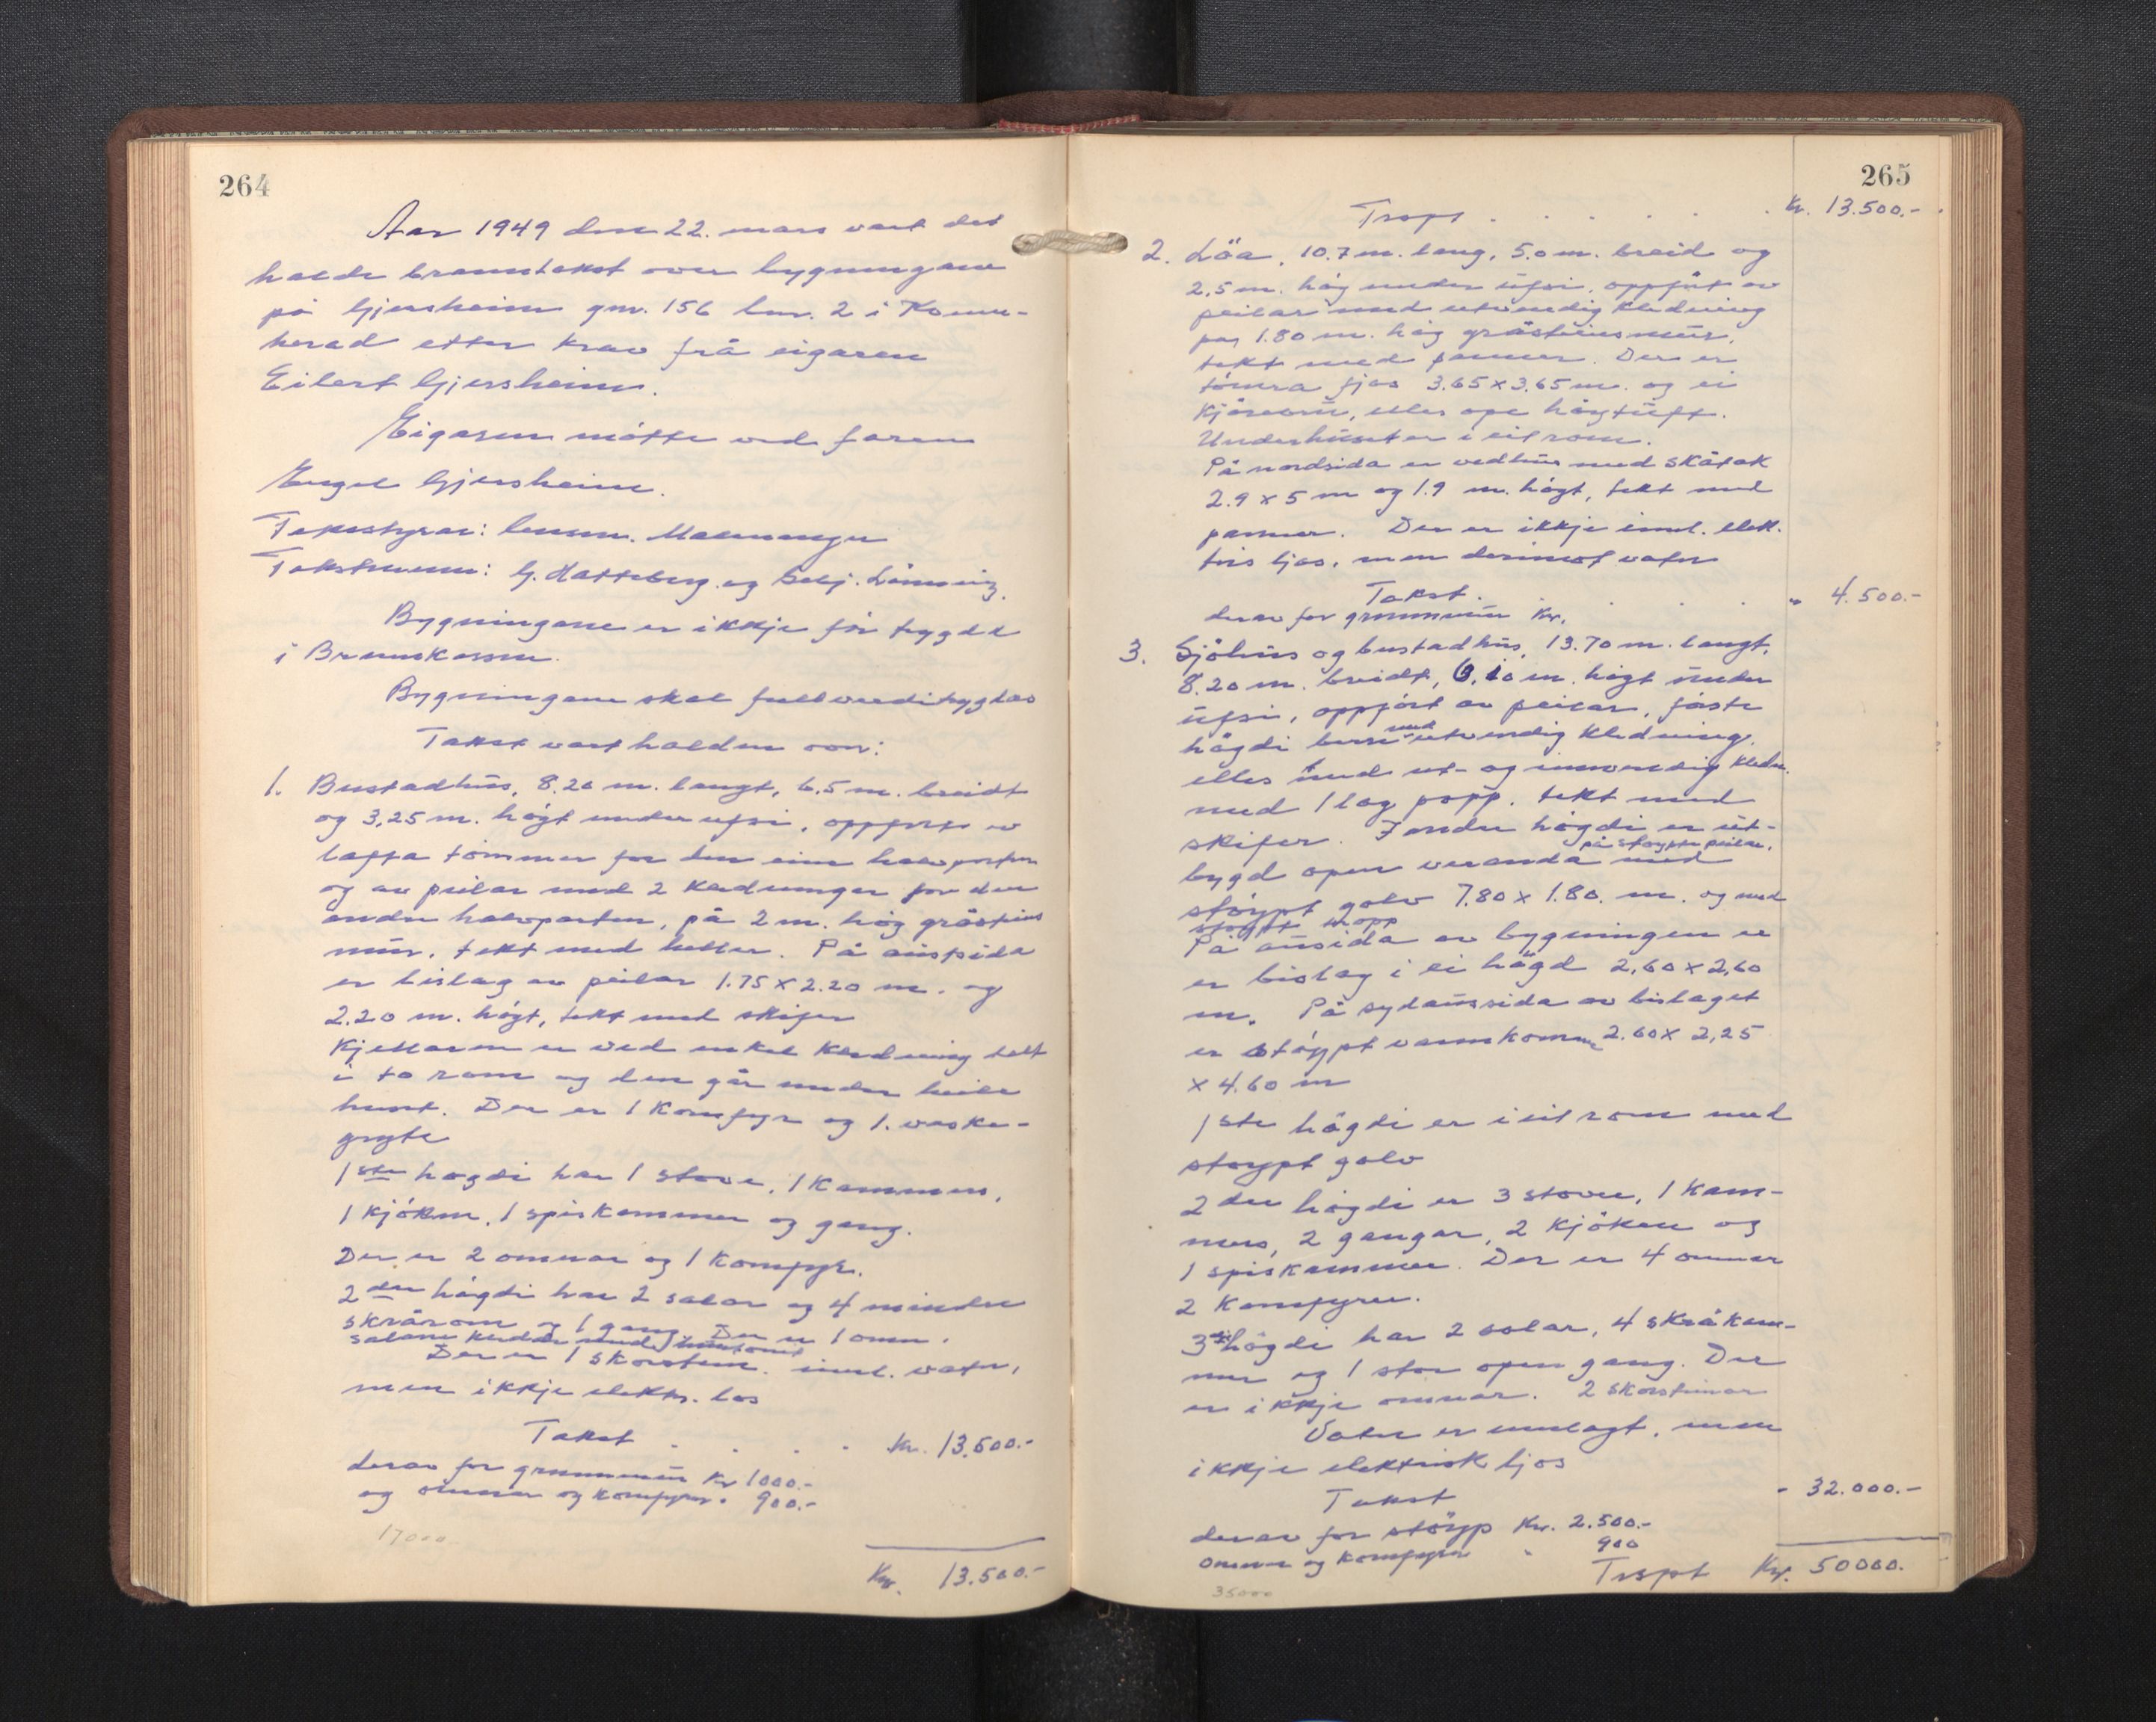 264
Aar 1949 den 22. mars vart det
halde branntakst over bygningane
på Gjersheim gnr. 156 bnr. 2 i Kvinn-
herad etter krav frå eigaren
Eilert Gjersheim.
Eigaren møtte ved faren
Engel Gjersheim.
Takststyrar: lensm. Malmanger
Takstmenn: G. Hatteberg og Selj. Lönning.
Bygningane er ikkje för trygda
i Brannkassa.
Bygningane skal fullverditrygdas
Takst vart halden over:
1. Bustadhus, 8.20 m. langt, 6.5 m. breidt
og 3,25 m. högt under ufsi, oppfört av
lafta tömmer for den eine halvparten
og av peilar med 2 kledningar for den
andre halvparten, på 2 m. hög gråsteins
mur, tekt med heller. På austsida
er bislag av peilar 1.75 x 2.20 m. og
2.20 m. högt, tekt med skifer
Kjellaren er ved enkel kledning delt
i to rom og den går under heile
huset. Der er 1 komfyr og 1. vaske-
gryte
1ste högdi har 1 stove, 1 kammers,
1 kjöken, 1 spiskammer og gang.
Der er 2 omnar og 1 komfyr.
2 dre högdi har 2 salar og 4 mindre
skrårom og 1 gang. Der er 1 omn.
salane kledde med
Der er 1 skorstein. innl. vatn,
men ikkje elektr. los
Takst . . . . Kr. 13.500.-
derav for grunnmur Kr 1000.-
og omnar og komfyrar. 900.-
17000
Kr. 13.500.-
265
Trspt . . . . . Kr. 13.500.-
2. Löa, 10.7 m. lang, 5.0 m. breid og
2,5 m. hög under ufsi, oppfört av
peilar med utvendig kledning
på 1.80 m. hög gråsteinsmur,
tekt med panner. Der er
tömra fjos 3.65 x 3.65 m. og ei
kjörebru, elles ope högtuft.
Underhuset er i eit rom.
På nordsida er vedhus med skåtak
2.9 x 5 m og 1.9 m. högt, tekt med
panner. Der er ikkje innl. elek-
tris ljos, men derimot vatn
Takst. . . . . " 4.500.-
derav for grunnmur Kr.
3. Sjöhus og bustadhus, 13.70 m. langt,
8.20 m. breidt, 6.10 m. högt under
ufsi, oppfört av peilar, förste
högdi berre med utvendig kledning,
elles med ut- og innvendig kledn.
med 1 lag papp. tekt med
skifer. I andre högdi er ut-
bygd open veranda med på stöypte peilar,
stöypt golv 7.80 x 1.80. m. og med
stöypt trapp
På ausida av bygningen er
er bislag i ei högd 2,60 x 2,60
m. På sydaussida av bislaget
er stöypt vannkomme 2.60 x 2,25
x 4.60 m
1ste högdi er i eit rom med
stöypt golv
2 dre högdi er 3 stover, 1 kam-
mers, 2 gangar, 2 kjöken og
1 spiskammer. Der er 4 omnar
2 komfyrer.
3 högdi har 2 salar, 4 skråkam-
mer og 1 stor open gang. Der
er ikkje omnar. 2 skorsteinar
Vatn er innlagt, men
ikkje elektrisk ljos
Takst - 32.000.-
derav for stöyp Kr. 2.500.-
omnar og komfyrar " 900
Trspt Kr. 50000.
35000